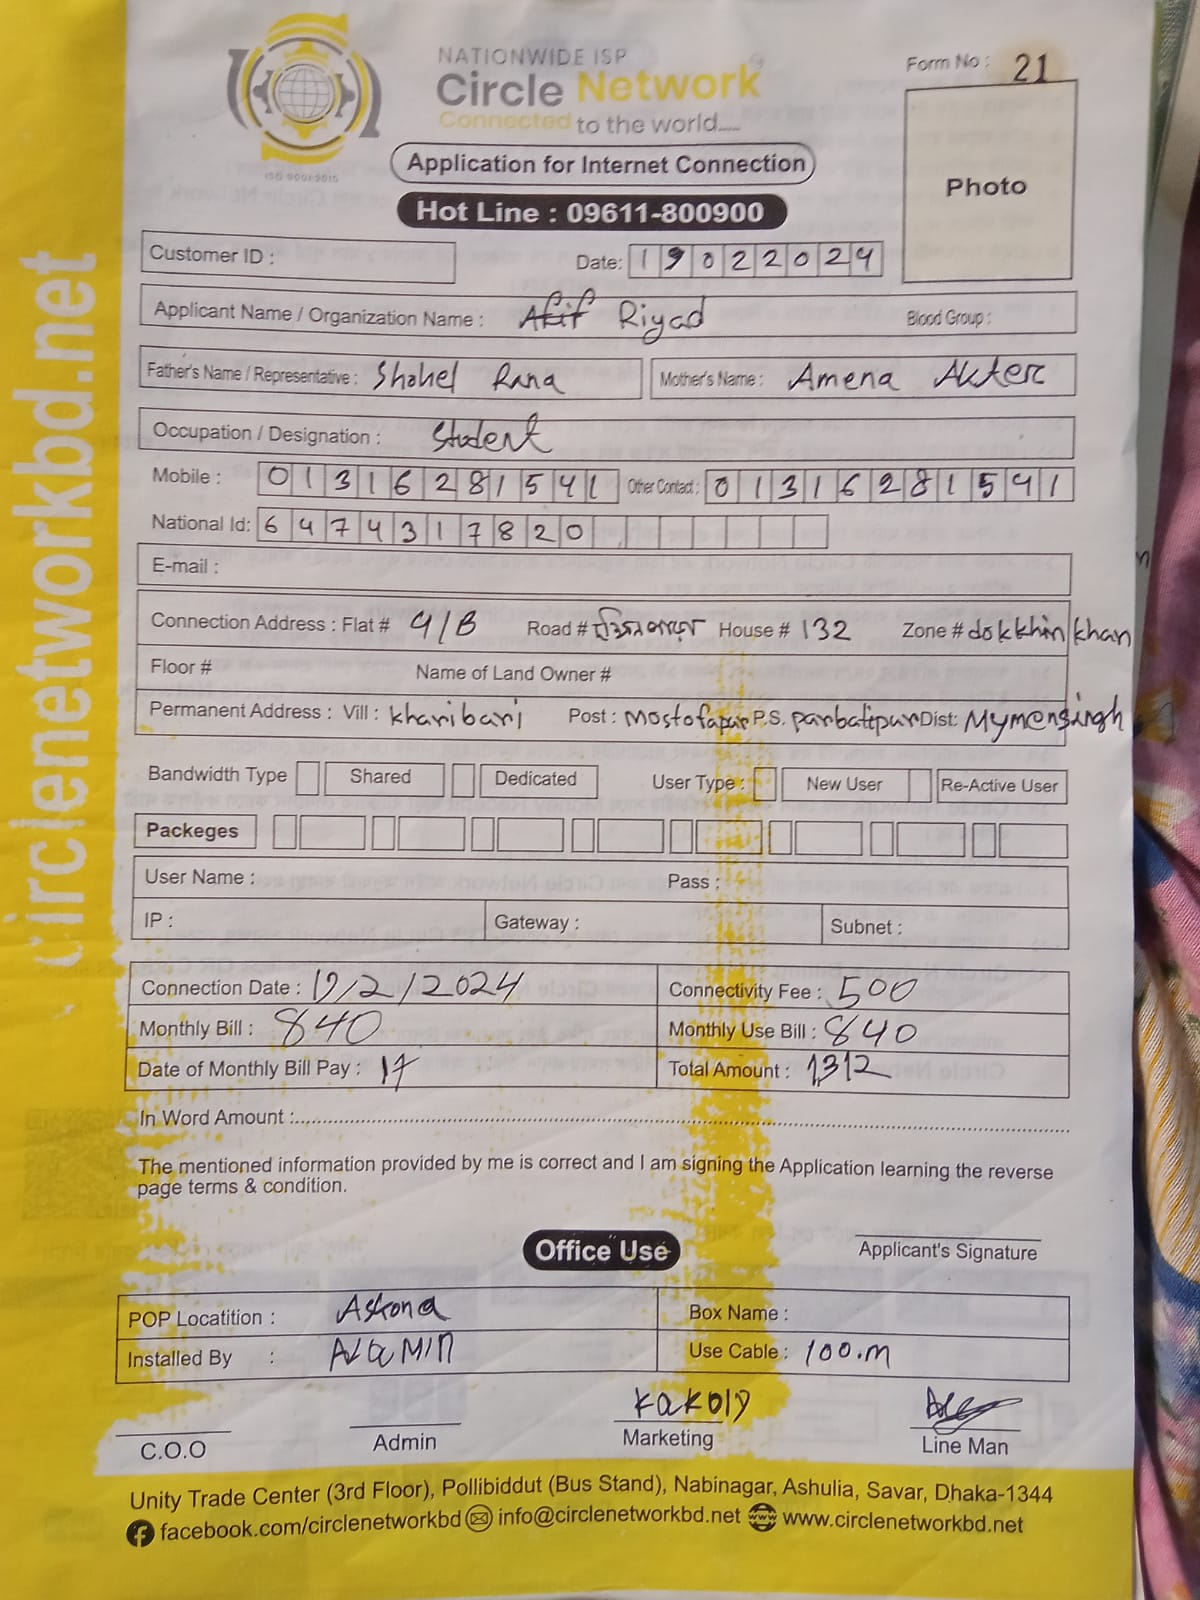 NATIONWIDE ISP
Circle Network
Connected to the world.....
ISO 9001:2015
Form No : 21
Photo
Application for Internet Connection
Hot Line : 09611-800900
circlenetworkbd.net
Customer ID :
Date: 19022024
Applicant Name / Organization Name : Afif Riyad Blood Group :
Father's Name / Representative : Shohel Rana Mother's Name : Amena Akter
Occupation / Designation : Student
Mobile : 01316281541 Other Contact : 01316281541
National Id: 6474317820
E-mail :
Connection Address : Flat # 4/B Road # House # 132 Zone # dokkhin khan
Floor # Name of Land Owner #
Permanent Address : Vill : kharibari Post : Mostofapur P.S. parbatipur Dist: Mymensingh
Bandwidth Type Shared Dedicated User Type : New User Re-Active User
Packeges
User Name : Pass :
IP : Gateway : Subnet :
Connection Date : 19/2/2024 Connectivity Fee : 500
Monthly Bill : 840 Monthly Use Bill : 840
Date of Monthly Bill Pay : 17 Total Amount : 1312
In Word Amount :
The mentioned information provided by me is correct and I am signing the Application learning the reverse
page terms & condition.
Applicant's Signature
Office Use
POP Locatition : Askona Box Name :
Installed By : AlaMin Use Cable : 100.m
C.O.O Admin kakoly Marketing Line Man
Unity Trade Center (3rd Floor), Pollibiddut (Bus Stand), Nabinagar, Ashulia, Savar, Dhaka-1344
facebook.com/circlenetworkbd info@circlenetworkbd.net www.circlenetworkbd.net